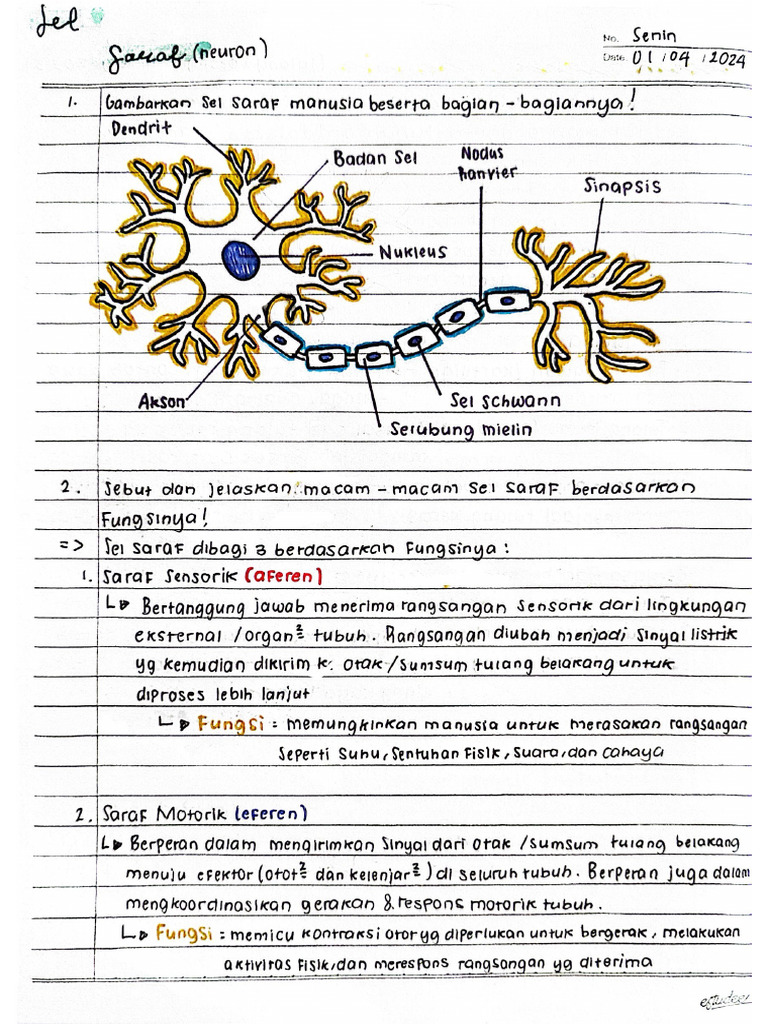 Sel
Saraf (neuron)
No. Senin
Date. 01 / 04 / 2024
1. Gambarkan sel saraf manusia beserta bagian-bagiannya!
Dendrit
Badan Sel
Nodus
Ranvier
Sinapsis
Nukleus
Akson
Sel schwann
Selubung mielin
2. Sebut dan jelaskan macam-macam sel saraf berdasarkan
Fungsinya!
=> Sel saraf dibagi 3 berdasarkan Fungsinya :
1. Saraf Sensorik (aferen)
↳ Bertanggung jawab menerima rangsangan sensorik dari lingkungan
eksternal /organ² tubuh. Rangsangan diubah menjadi sinyal listrik
yg kemudian dikirim k. otak /sumsum tulang belakang untuk
diproses lebih lanjut
↳ Fungsi : memungkinkan manusia untuk merasakan rangsangan
seperti suhu, sentuhan fisik, suara, dan cahaya
2. Saraf Motorik (eferen)
↳ Berperan dalam mengirimkan sinyal dari otak /sumsum tulang belakang
menuju efektor (otot² dan kelenjar²) di seluruh tubuh. Berperan juga dalam
mengkoordinasikan gerakan & respons motorik tubuh.
↳ Fungsi : memicu kontraksi otot yg diperlukan untuk bergerak, melakukan
aktivitas fisik, dan merespons rangsangan yg diterima